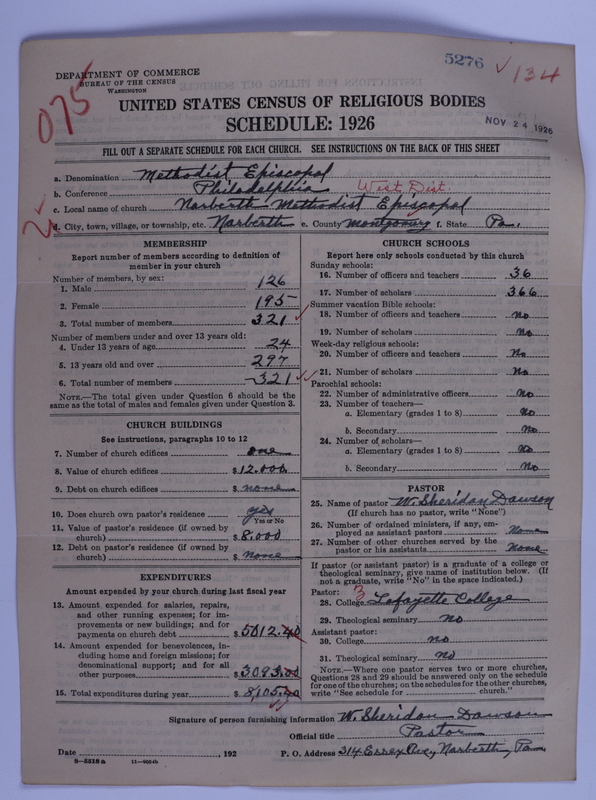 5276
✓134
DEPARTMENT OF COMMERCE
BUREAU OF THE CENSUS
WASHINGTON
075
UNITED STATES CENSUS OF RELIGIOUS BODIES
SCHEDULE: 1926
NOV 24 1926
FILL OUT A SEPARATE SCHEDULE FOR EACH CHURCH. SEE INSTRUCTIONS ON THE BACK OF THIS SHEET
a. Denomination Methodist Episcopal
b. Conference Philadelphia West Dist.
c. Local name of church Narberth Methodist Episcopal
d. City, town, village, or township, etc. Narberth e. County Montgomery f. State Pa.
MEMBERSHIP
Report number of members according to definition of
member in your church
Number of members, by sex:
1. Male 126
2. Female 195
3. Total number of members 321 ✓
Number of members under and over 13 years old:
4. Under 13 years of age 24
5. 13 years old and over 297
6. Total number of members 321 ✓✓
NOTE.—The total given under Question 6 should be the
same as the total of males and females given under Question 3.
CHURCH BUILDINGS
See instructions, paragraphs 10 to 12
7. Number of church edifices one
8. Value of church edifices $12.000
9. Debt on church edifices $ none
10. Does church own pastor's residence yes
Yes or No
11. Value of pastor's residence (if owned by
church) $8.000
12. Debt on pastor's residence (if owned by
church) $ none
EXPENDITURES
Amount expended by your church during last fiscal year
13. Amount expended for salaries, repairs,
and other running expenses; for im-
provements or new buildings; and for
payments on church debt $5012.40
14. Amount expended for benevolences, in-
cluding home and foreign missions; for
denominational support; and for all
other purposes $3093.00
15. Total expenditures during year $8,105.40
CHURCH SCHOOLS
Report here only schools conducted by this church
Sunday schools:
16. Number of officers and teachers 36
17. Number of scholars 366
Summer vacation Bible schools:
18. Number of officers and teachers no
19. Number of scholars no
Week-day religious schools:
20. Number of officers and teachers no
21. Number of scholars no
Parochial schools:
22. Number of administrative officers no
23. Number of teachers—
a. Elementary (grades 1 to 8) no
b. Secondary no
24. Number of scholars—
a. Elementary (grades 1 to 8) no
b. Secondary no
PASTOR
25. Name of pastor W. Sheridan Dawson
(If church has no pastor, write "None")
26. Number of ordained ministers, if any, em-
ployed as assistant pastors None
27. Number of other churches served by the
pastor or his assistants None
If pastor (or assistant pastor) is a graduate of a college or
theological seminary, give name of institution below. (If
not a graduate, write "No" in the space indicated.)
Pastor: 3
28. College Lafayette College
29. Theological seminary no
Assistant pastor:
30. College no
31. Theological seminary no
NOTE.—Where one pastor serves two or more churches,
Questions 28 and 29 should be answered only on the schedule
for one of the churches; on the schedules for the other churches,
write "See schedule for church."
Signature of person furnishing information W. Sheridan Dawson
Official title Pastor
Date , 192 P. O. Address 314 Essex Ave, Narberth, Pa.
8—5218a 11—9064b